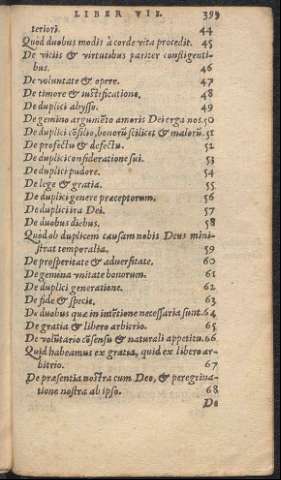 LIBER VII. 399
teriori. 44
Quod duobus modis à corde vita procedit. 45
De vitiis & virtutibus pariter confligenti-
bus. 46
De voluntate & opere. 47
De timore & iustificatione. 48
De duplici abysso. 49
De gemino argumẽto amoris Dei erga nos. 50
De duplici cõsilio, bonorũ scilicet & malorũ. 51
De profectu & defectu. 52
De duplici consideratione sui. 53
De duplici pudore. 54
De lege & gratia. 55
De duplici genere præceptorum. 56
De duplici ira Dei. 57
De duobus diebus. 58
Quod ob duplicem causam nobis Deus mini-
strat temporalia. 59
De prosperitate & aduersitate. 60
De gemina vnitate bonorum. 61
De duplici generatione. 62
De fide & specie. 63
De duobus quæ in intẽtione necessaria sunt. 64
De gratia & libero arbitrio. 65
De volũtario cõsensu & naturali appetitu. 66
Quid habeamus ex gratia, quid ex libero ar-
bitrio. 67
De præsentia nostra cum Deo, & peregrina-
tione nostra ab ipso. 68
De